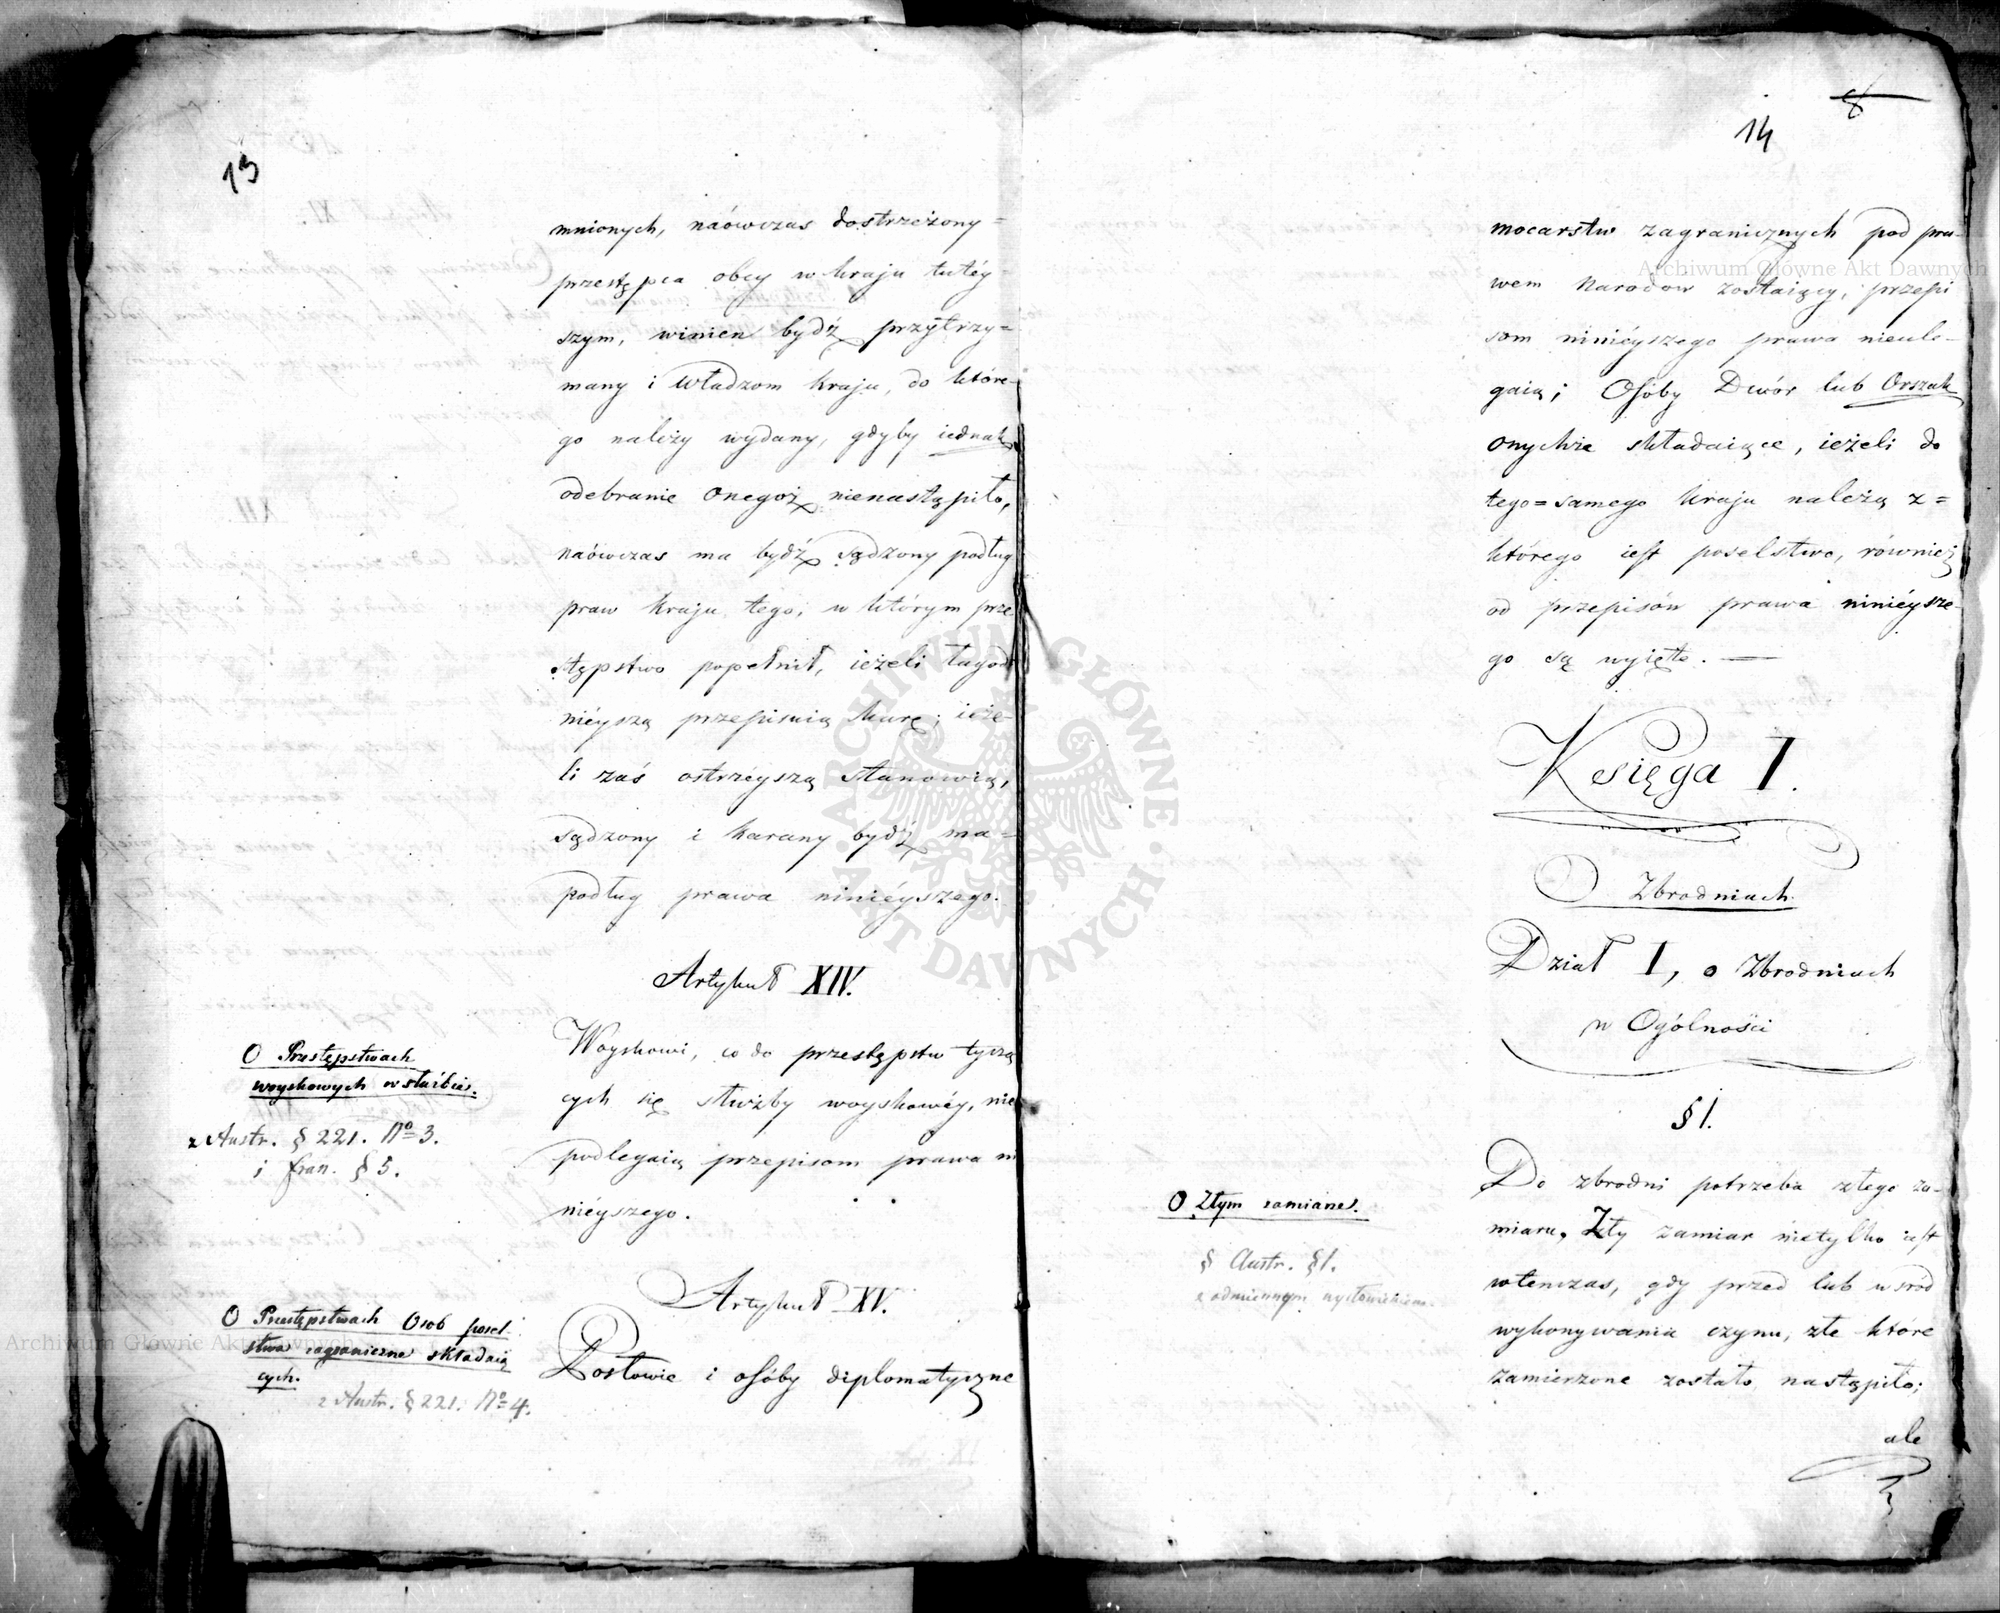 13
mnionych, naówczas dostrzeżony=
przestępca obcy w kraju tutéy
szym, winien bydź przytrzy=
many i Władzom kraju, do które-
go należy wydany, gdyby iednak
odebranie onegoż nienastąpiło,
naówczas ma bydź sądzony podług
praw kraju tego, w którym prze
stępstwo popełnił, ieżeli łagod
niéyszą przepisuią karę; ieże-
li zaś ostrzéyszą stanowią,
sądzony i karany bydź ma=
podług prawa ninieyszego.
Artykuł XIV.
O Przestępstwach
woyskowych w służbie.
z Austr. § 221. No 3.
i fran. § 5.
Woyskowi, co do przestępstw tyczą
cych się służby woyskowéy, nie
podlegaią przepisom prawa ni
niéyszego.
Artykuł XV.
O Przestępstwach Osob posel-
stwa zagraniczne składaią
cych.
z Austr. § 221. No 4.
Posłowie i osóby diplomatyczne
8
14
mocarstw zagranicznych pod pra-
wem Narodow zostaiący, przepi
som niniéyszego prawa nieule-
gaią; Osóby Dwór lub Orszak
onychże składaiące, ieżeli do
tego=samego kraju należą z=
którego iest poselstwo, również
od przepisów prawa niniéysze-
go są wyięte. —
Księga I.
O Zbrodniach.
Dział I, o Zbrodniach
w Ogólności
§ 1.
O Złym zamiarze.
§ Austr. § 1.
z odmiennym wysłowieniem.
Do zbrodni potrzeba złego za-
miaru. Zły zamiar nietylko iest
wtenczas, gdy przed lub wsród
wykonywania czynu, złe które
zamierzone zostało, nastąpiło;
ale
ARCHIWUM GŁÓWNE AKT DAWNYCH
Archiwum Główne Akt Dawnych
Archiwum Główne Akt Dawnych